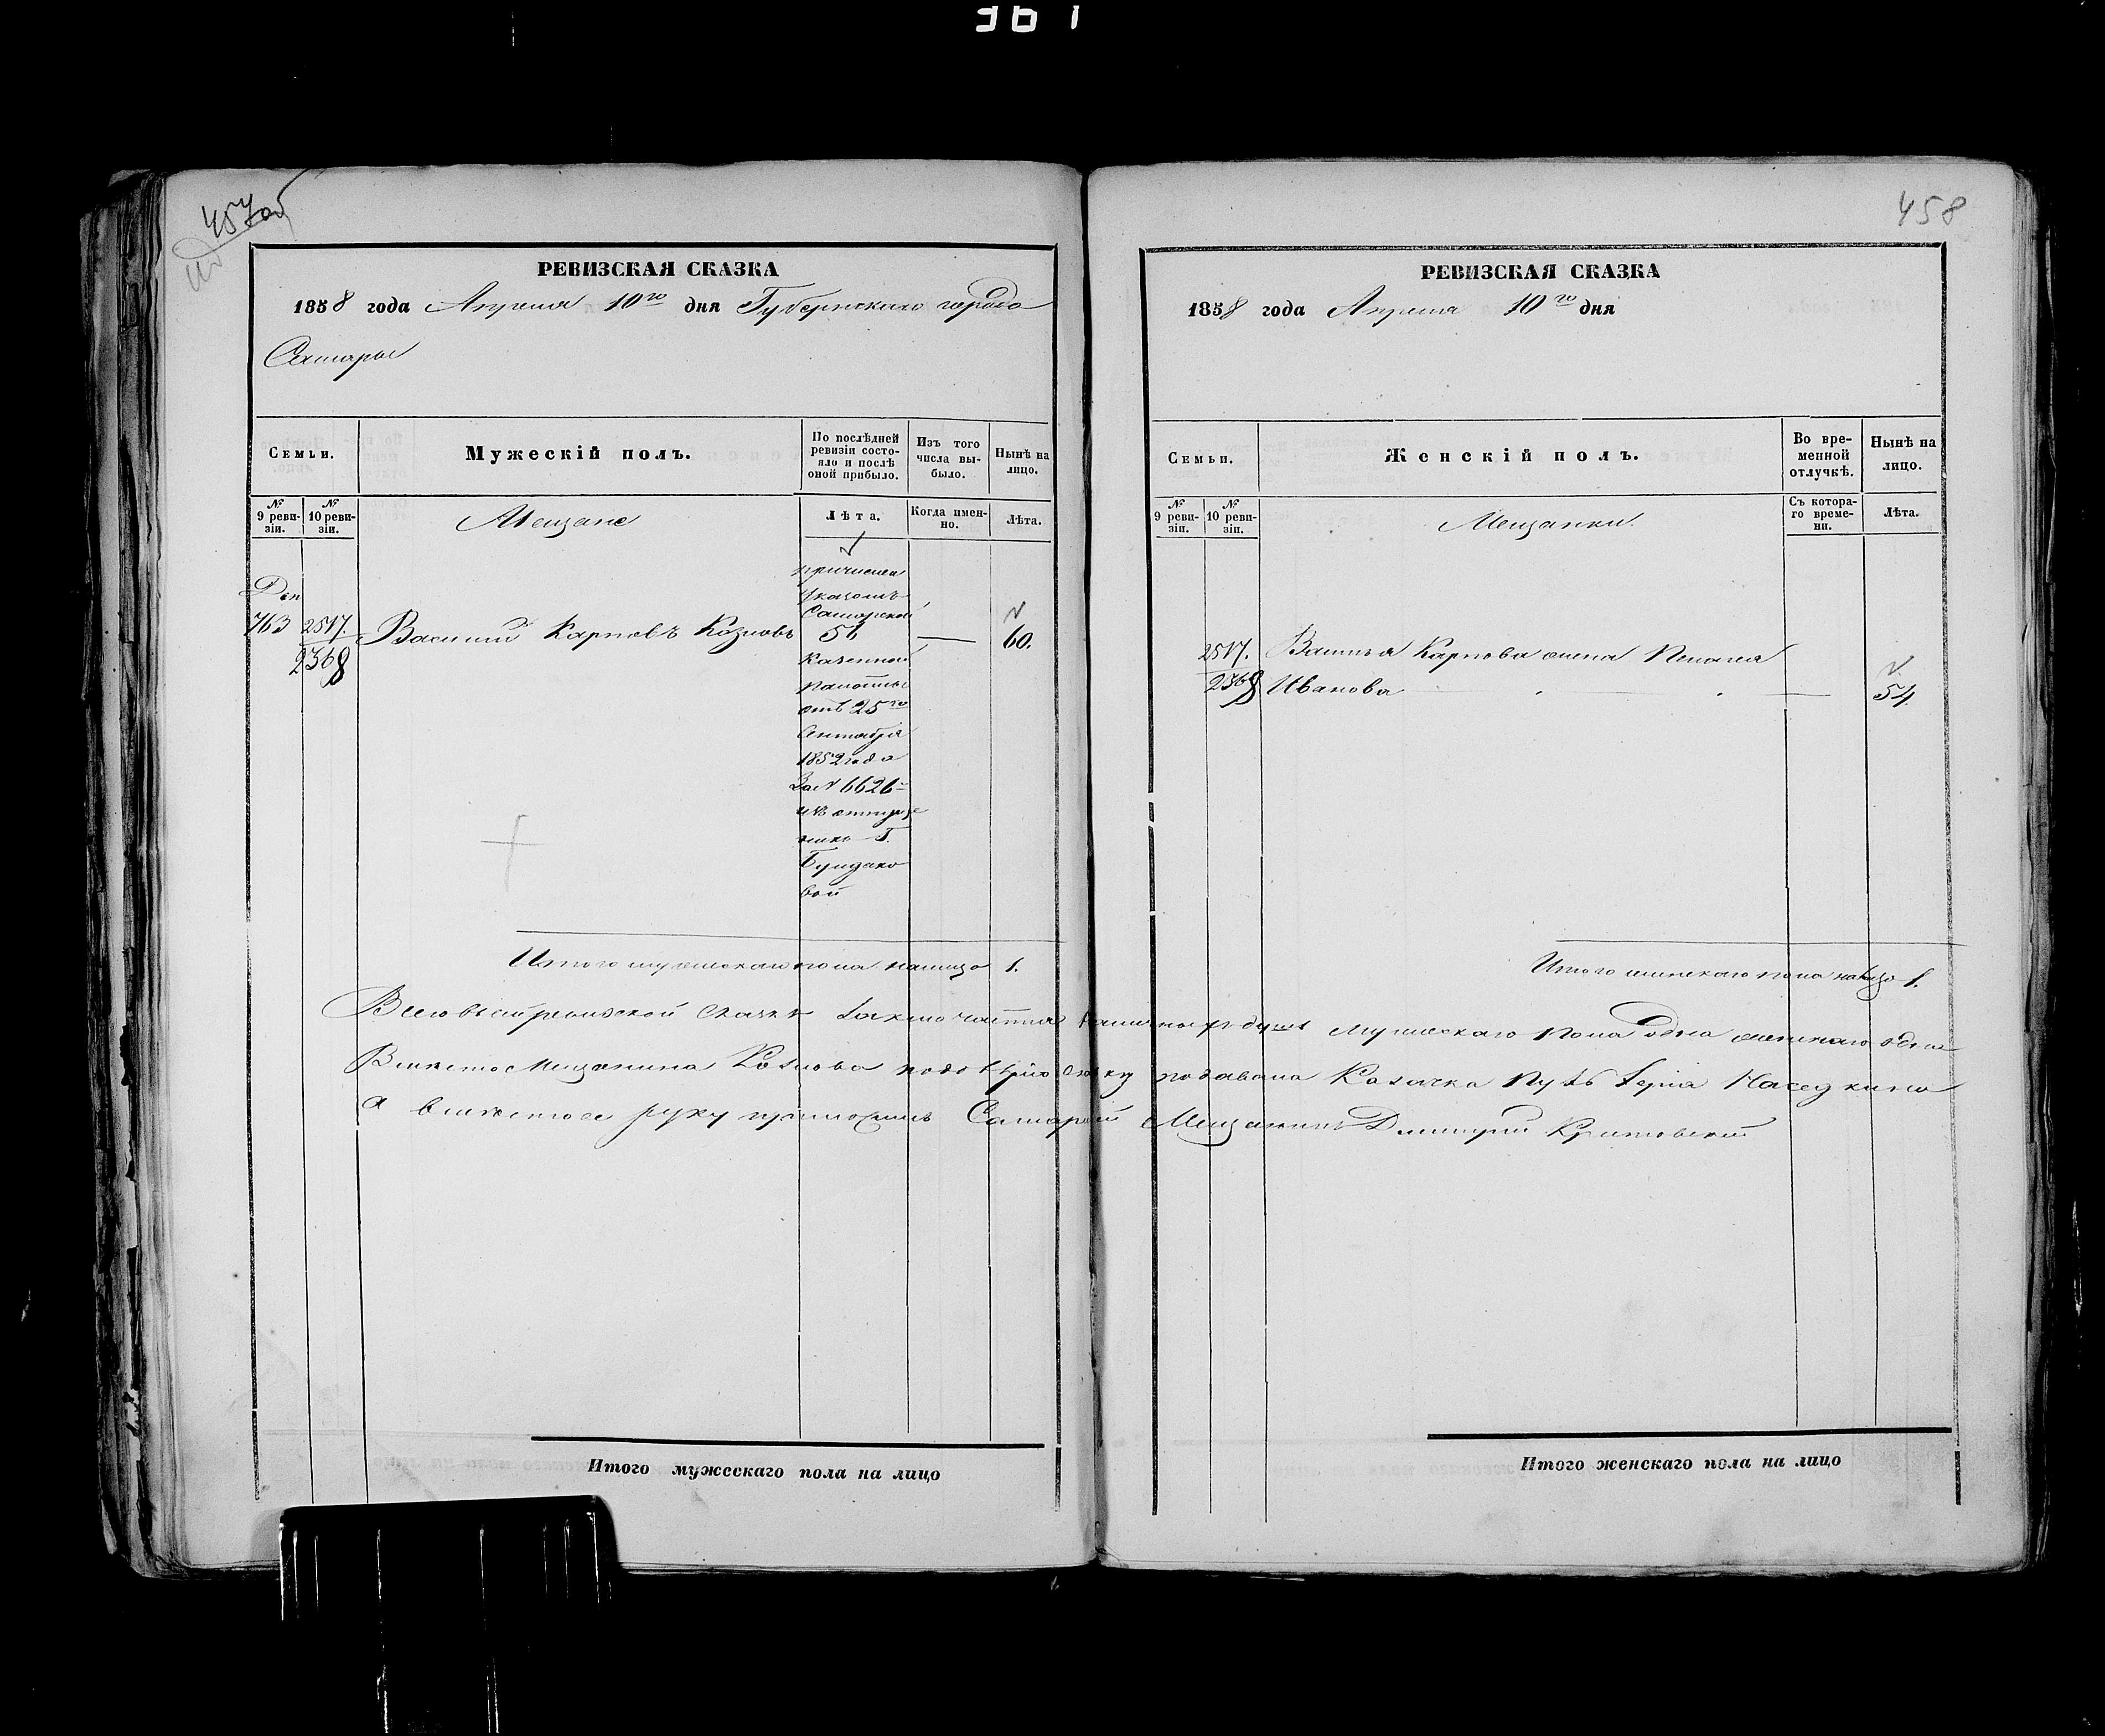 361
457об
РЕВИЗСКАЯ СКАЗКА
1858 года Апреля 10го дня Губернскаго города
Самары
Семьи.
Мужескій полъ.
По послѣдней ревизіи состояло и послѣ оной прибыло.
Изъ того числа выбыло.
Нынѣ на лицо.
№ 9 ревизіи.
№ 10 ревизіи.
Мещане
Лѣта.
Когда именно.
Лѣта.
Доп
763
2517.
2368
Василий Карповъ Козловъ
причислен
указомъ
Самарской
56
60.
Казенной
Палаты
отъ 25го
Сентября
1852 года
За № 6626
изъ отпуще
ников Г.
вой
Итого мужескаго пола налицо 1.
458
РЕВИЗСКАЯ СКАЗКА
1858 года Апреля 10го дня
Семьи.
Женскій полъ.
Во временной отлучкѣ.
Нынѣ на лицо.
№ 9 ревизіи.
№ 10 ревизіи.
Мещанки
Съ котораго времени.
Лѣта.
2517.
2368
Василья Карпова жена Пелагея
Иванова
54
Итого женскаго пола налицо 1.
Всего в сей ревизской сказке заключается наличныхъ душъ мужескаго пола одна женскаго одна
Вместо Мещанина Козлова подавала Казачка
а вместо ее руку приложилъ Самарский Мещанинъ Дмитрий
Итого мужескаго пола на лицо
Итого женскаго пола на лицо